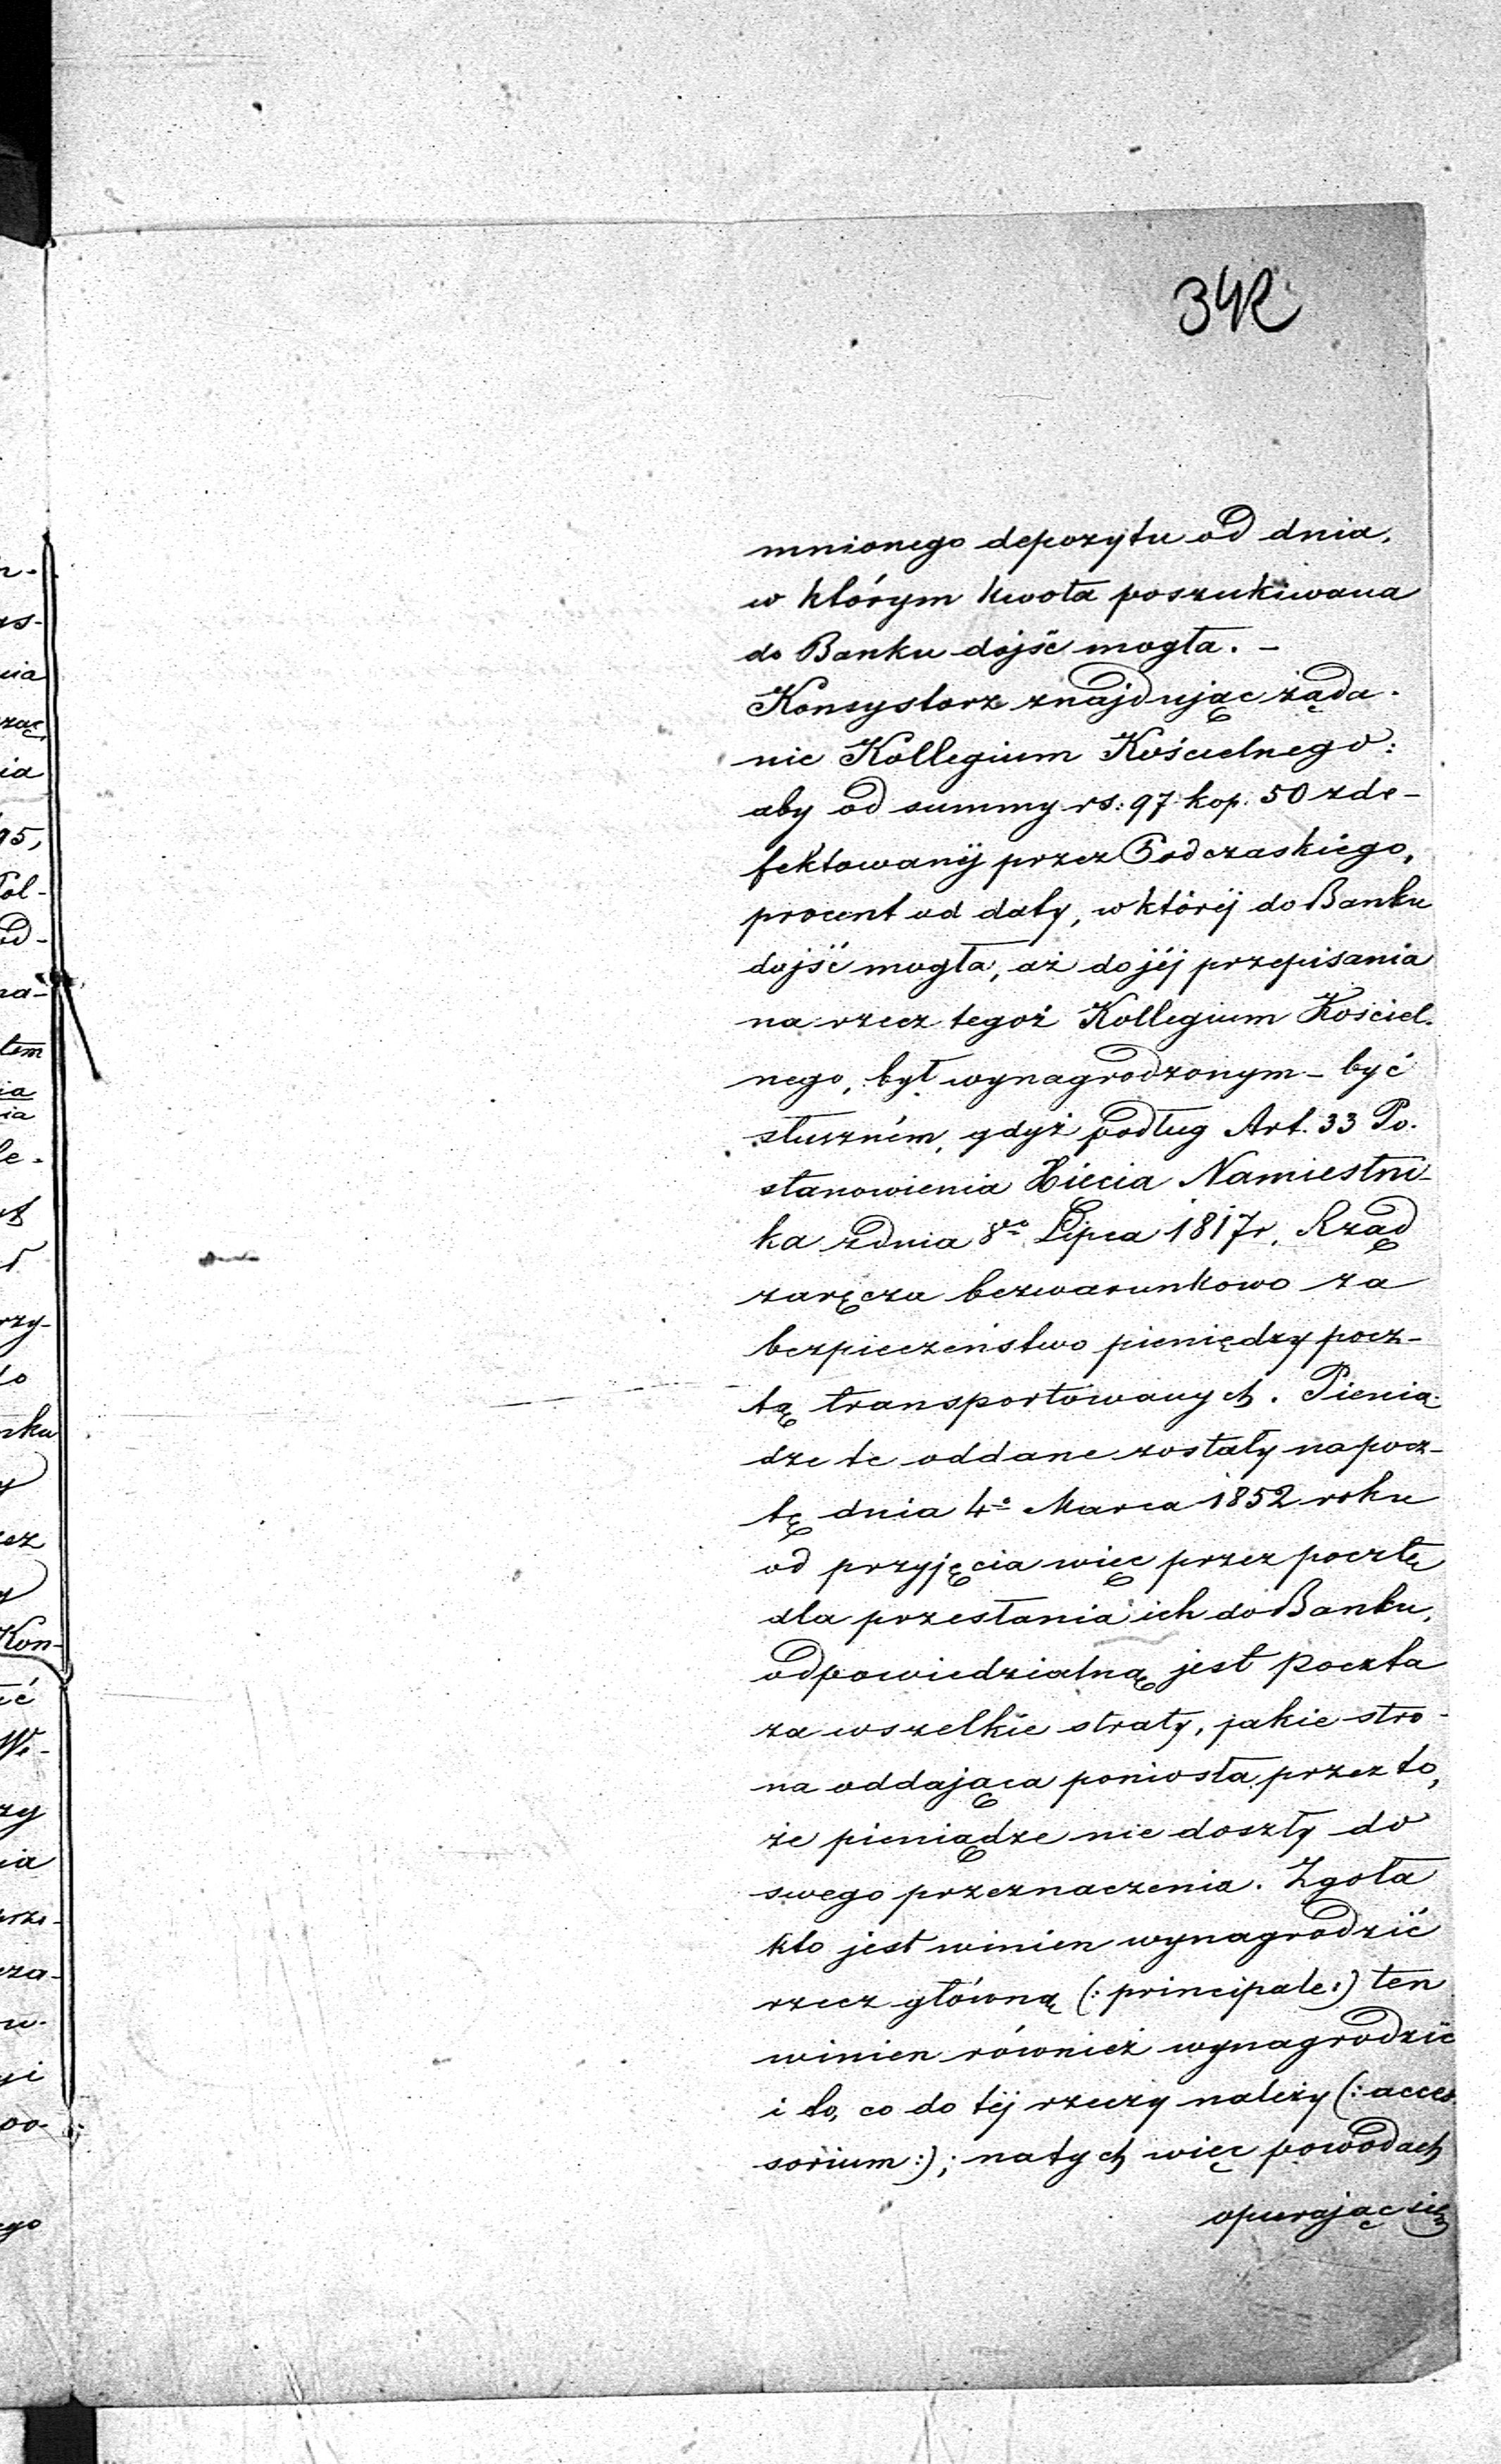 342
mnionego depozytu od dnia,
w którym kwota poszukiwana
do Banku dojść mogła. –
Konsystorz znajdując żąda-
nie Kollegium Kościelnego:
aby od summy rs: 97 kop. 50 zde-
fektowanéj przez Podczaskiego,
procent od daty, w któréj do Banku
dojść mogła, aż do jéj przepisania
na rzecz tegoż Kollegium Kościel-
nego, był wynagrodzonym – być
słuszném, gdyż podług Art. 33 Po-
stanowienia Xięcia Namiestni-
ka z dnia 8go Lipca 1817 r. Rząd
zaręcza bezwarunkowo za
bezpieczeństwo pieniędzy pocz-
tą transportowanych. Pienią-
dze te oddane zostały na pocz-
tę dnia 4o Marca 1852 roku
od przyjęcia więc przez pocztę
dla przesłania ich do Banku,
odpowiedzialną jest poczta
za wszelkie straty, jakie stro-
na oddająca poniosła przez to,
że pieniądze nie doszły do
swego przeznaczenia. Zgoła
kto jest winien wynagrodzić
rzecz główną (: principale :) ten
winien również wynagrodzić
i to, co do téj rzeczy należy (: acces-
sorium :); na tych więc powodach
opierając się